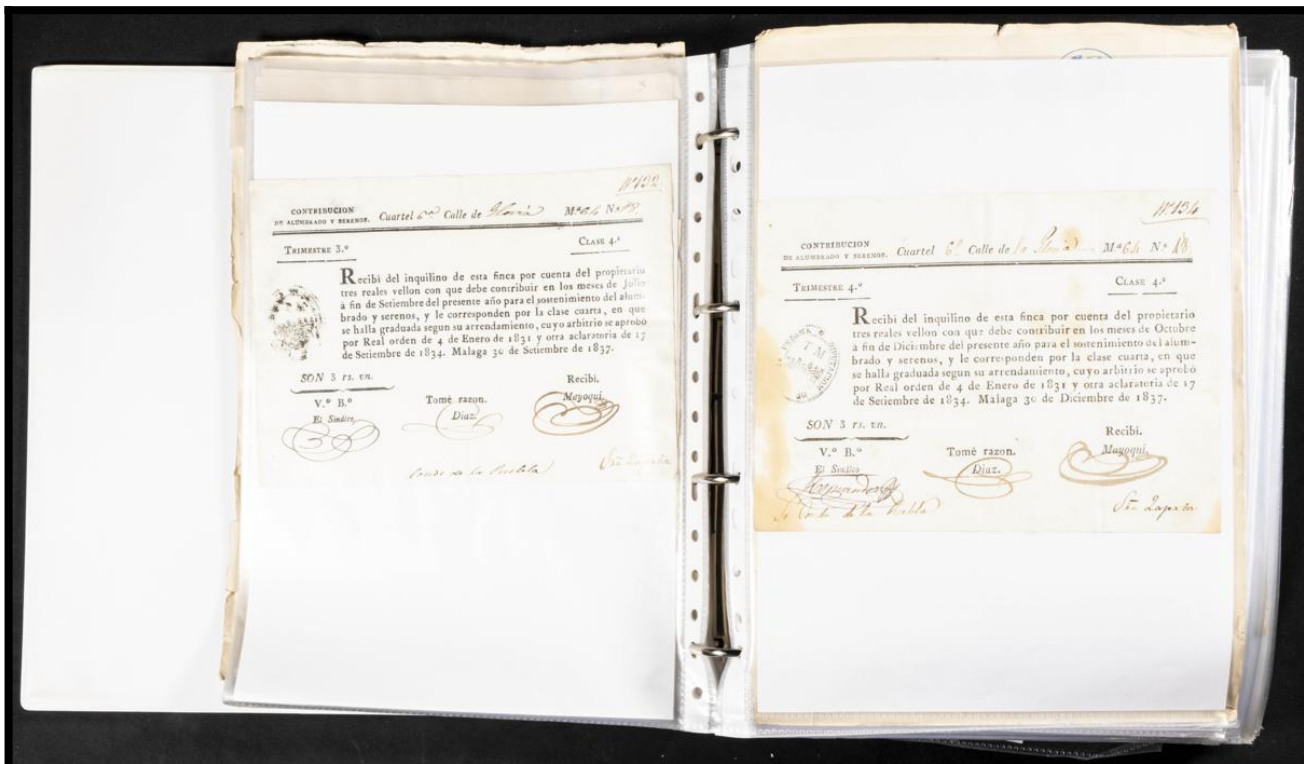 Nº 132
CONTRIBUCION
DE ALUMBRADO Y SERENOS. Cuartel 6º Calle de Gloria Mª 64 Nº 18
TRIMESTRE 3.º CLASE 4.ª
Recibí del inquilino de esta finca por cuenta del propietario
tres reales vellon con que debe contribuir en los meses de Julio
à fin de Setiembre del presente año para el sostenimiento del alum-
brado y serenos, y le corresponden por la clase cuarta, en que
se halla graduada segun su arrendamiento, cuyo arbitrio se aprobó
por Real orden de 4 de Enero de 1831 y otra aclaratoria de 17
de Setiembre de 1834. Malaga 30 de Setiembre de 1837.
SON 3 rs. vn. Recibi.
V.º B.º Tomé razon. Mayoqui.
El Sindico, Diaz.
Conde de la Puebla
Nº 134
CONTRIBUCION
DE ALUMBRADO Y SERENOS. Cuartel 6º Calle de la Gloria Mª 64 Nº 18
TRIMESTRE 4.º CLASE 4.ª
Recibi del inquilino de esta finca por cuenta del propietario
tres reales vellon con que debe contribuir en los meses de Octubre
à fin de Diciembre del presente año para el sostenimiento del alum-
brado y serenos, y le corresponden por la clase cuarta, en que
se halla graduada segun su arrendamiento, cuyo arbitrio se aprobó
por Real orden de 4 de Enero de 1831 y otra aclaratoria de 17
de Setiembre de 1834. Malaga 30 de Diciembre de 1837.
SON 3 rs. vn. Recibi.
V.º B.º Tomé razon. Mayoqui.
El Sindico Diaz.
Hernandez
Sr Conde de la Puebla